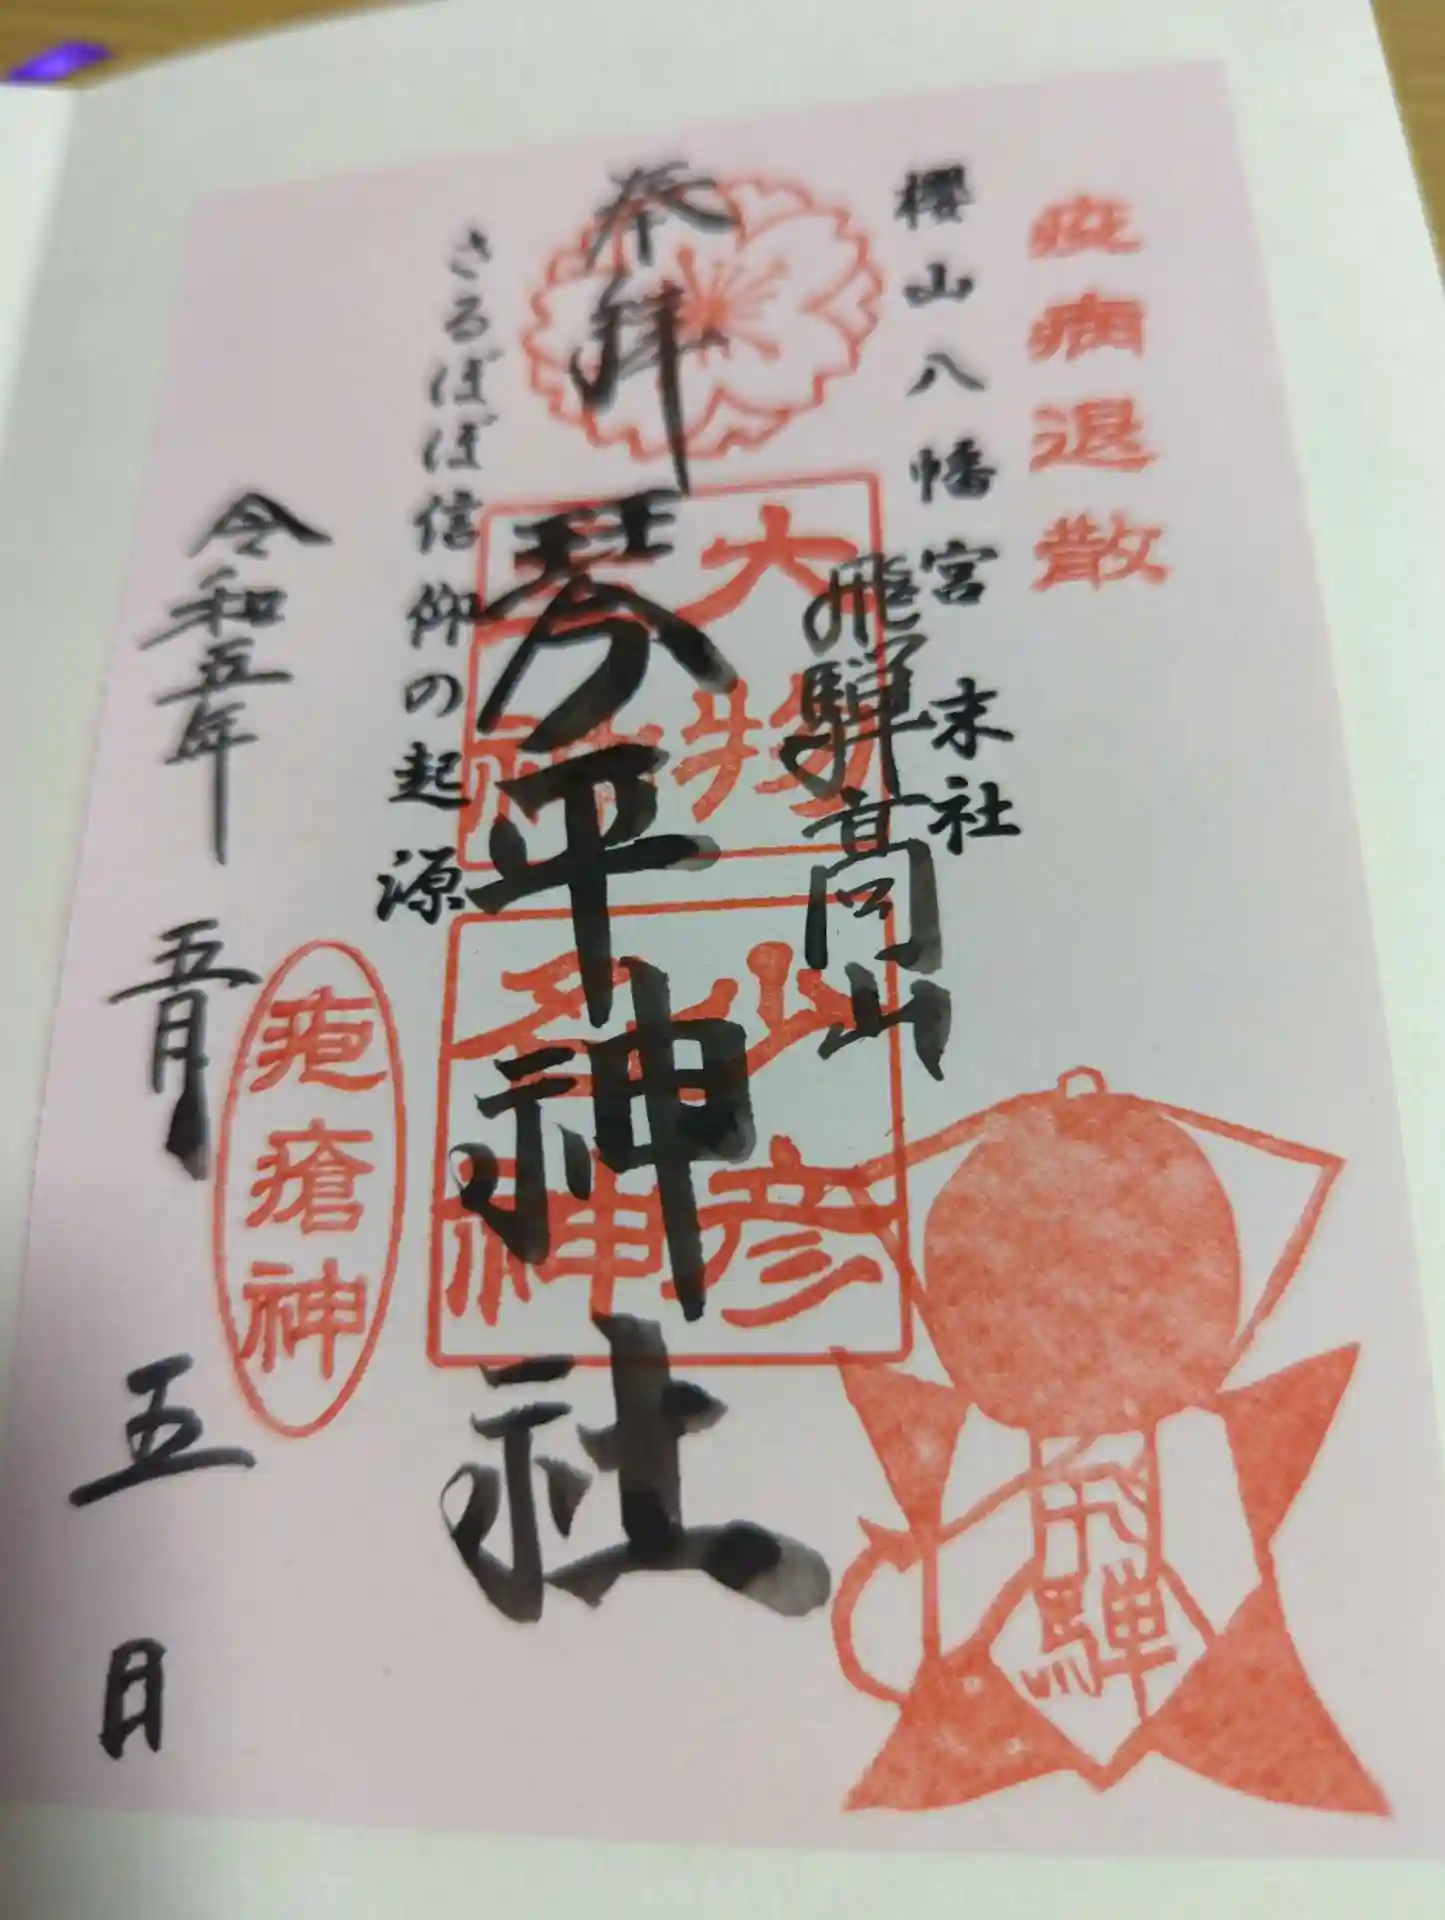 疫病退散
櫻山八幡宮 末社
飛騨高山
奉拝
琴平神社
大物主神
山彦多神
さるぼぼ信仰の起源
疱瘡神
令和五年 五月 五日
飛騨